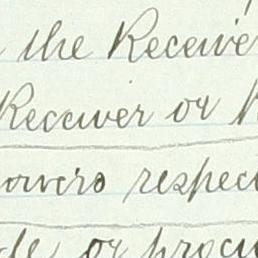 the Receive
Receiver or R
owers respec
de, or procu